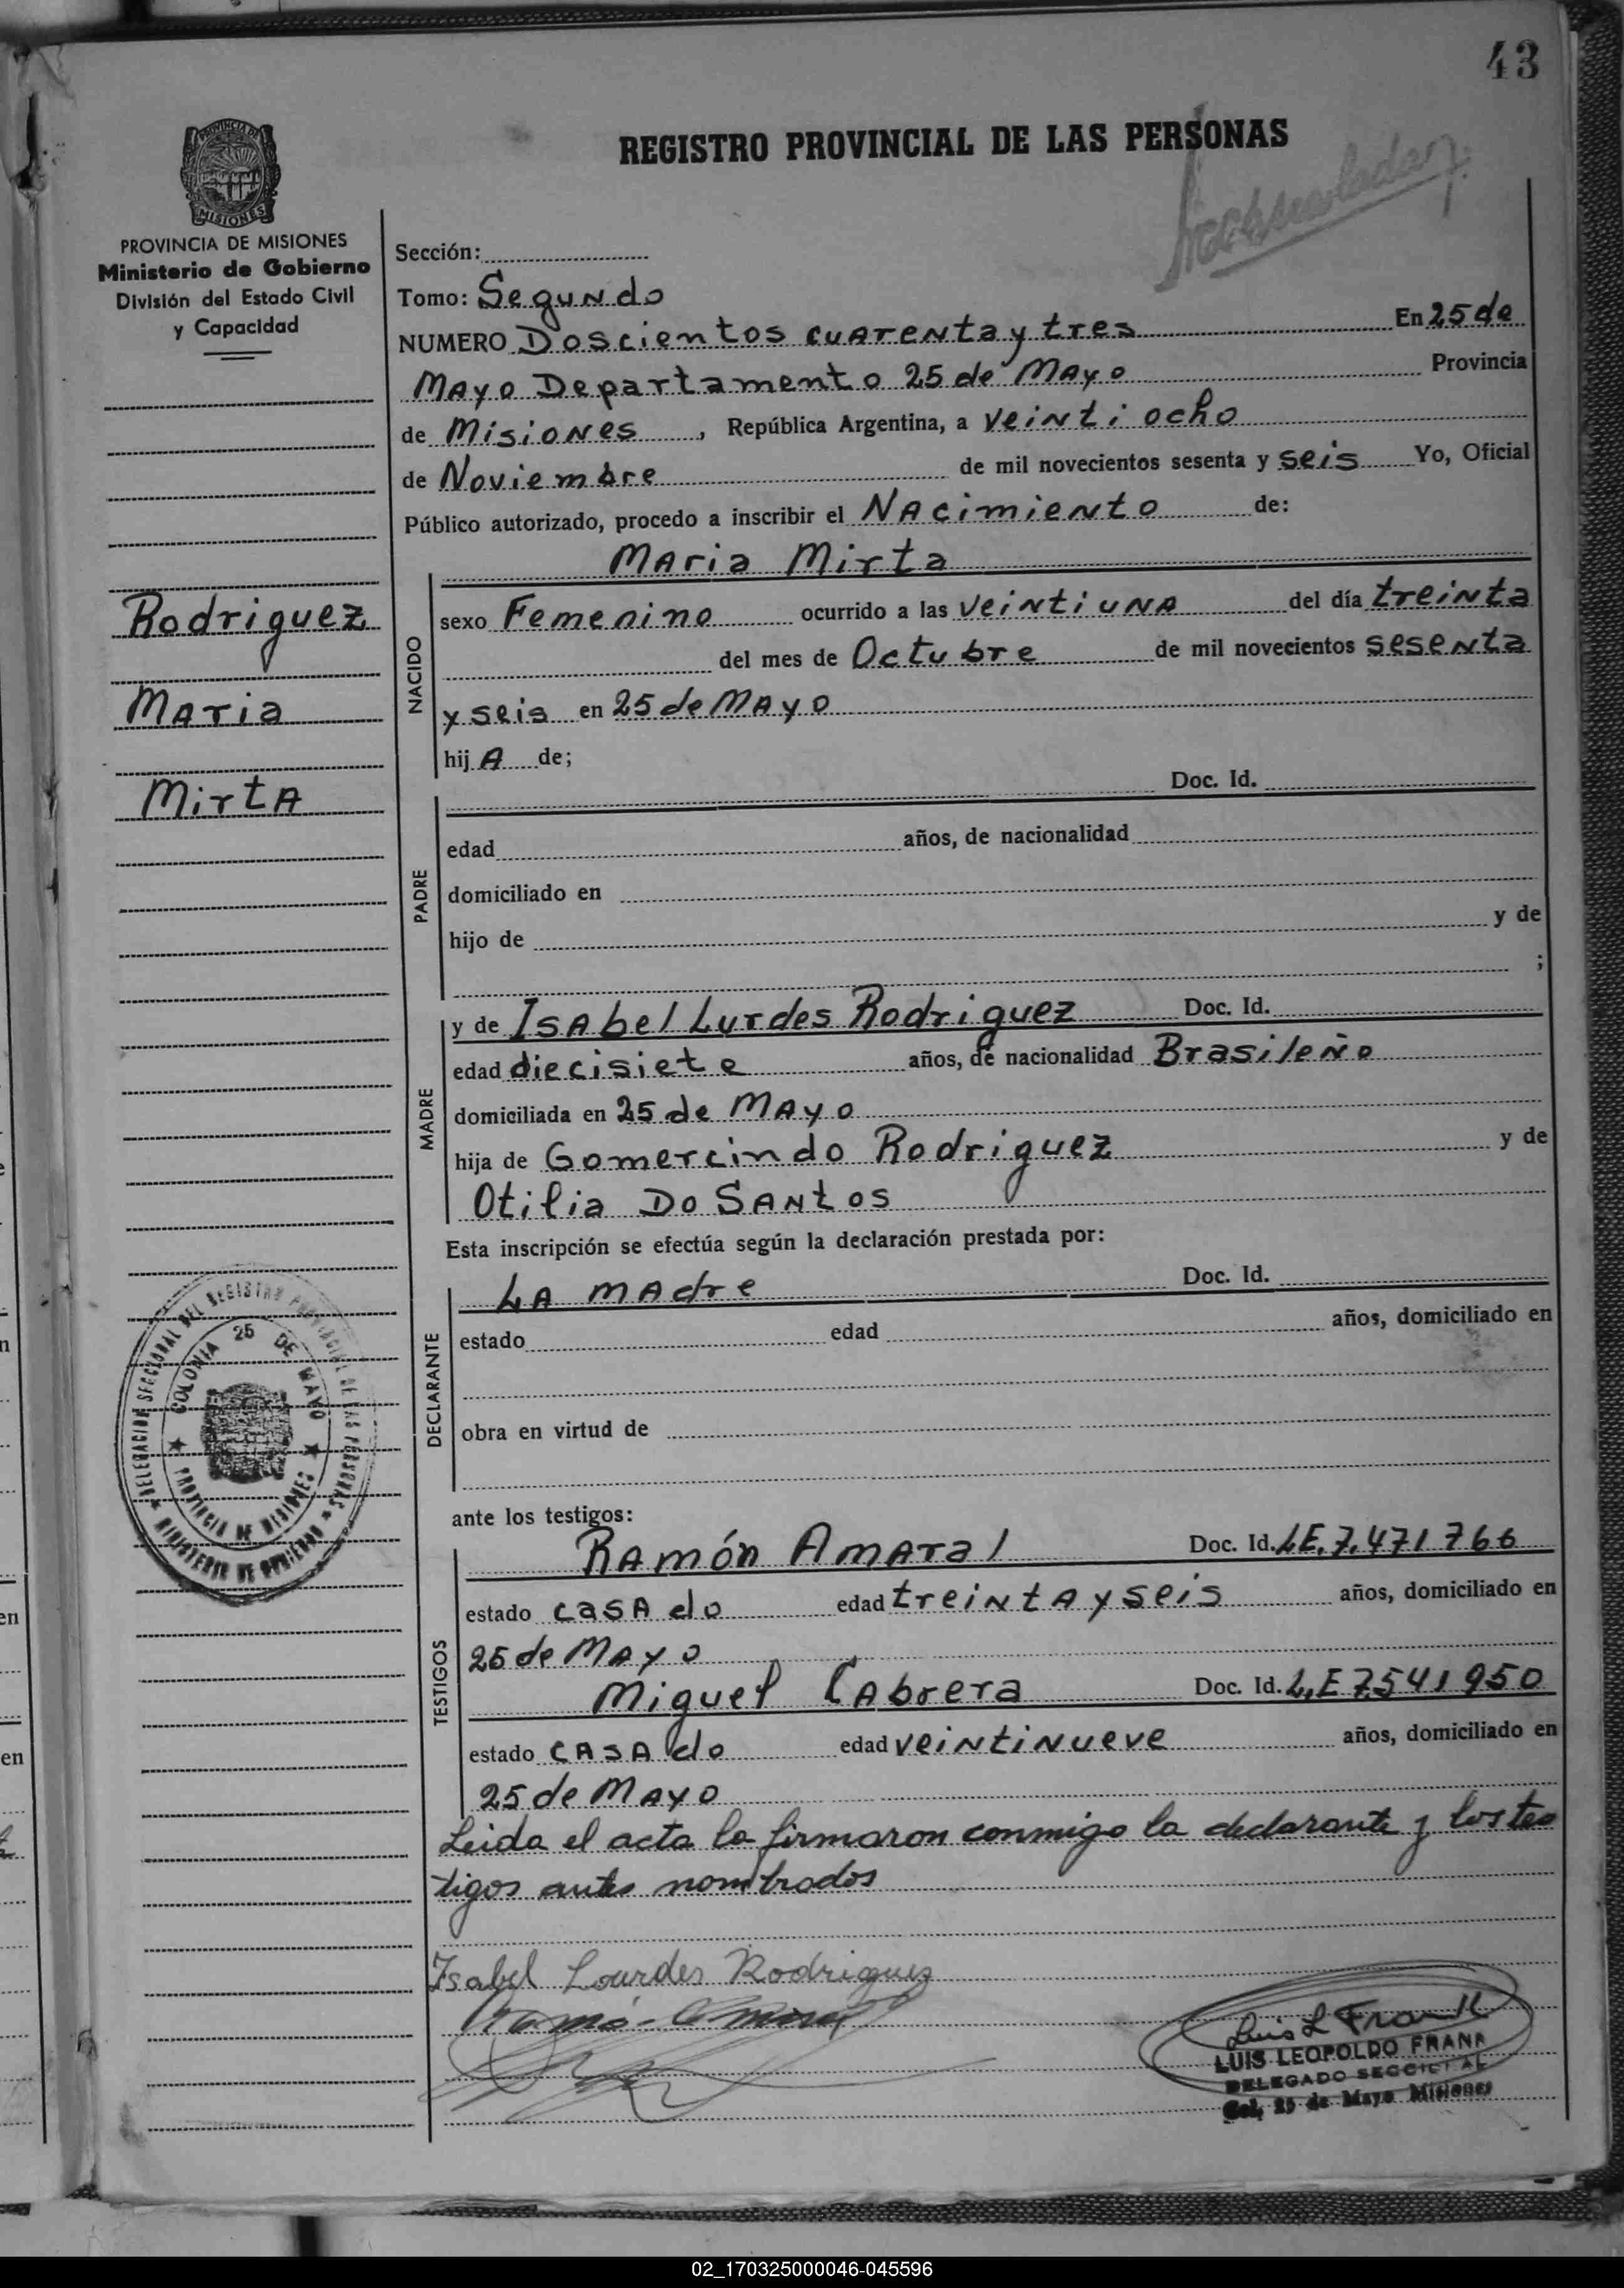 43
PROVINCIA DE
MISIONES
REGISTRO PROVINCIAL DE LAS PERSONAS
PROVINCIA DE MISIONES
Ministerio de Gobierno
División del Estado Civil
y Capacidad
Sección:
Tomo: Segundo
NUMERO Doscientos cuarenta y tres En 25 de
Mayo Departamento 25 de Mayo Provincia
de Misiones, República Argentina, a veinti ocho
de Noviembre de mil novecientos sesenta y seis Yo, Oficial
Público autorizado, procedo a inscribir el Nacimiento de:
Maria Mirta
Rodriguez
Maria
Mirta
NACIDO
sexo Femenino ocurrido a las veintiuna del día treinta
del mes de Octubre de mil novecientos sesenta
y seis en 25 de Mayo
hij A de;
PADRE
Doc. Id.
edad años, de nacionalidad
domiciliado en
hijo de y de
;
MADRE
y de Isabel Lurdes Rodriguez Doc. Id.
edad diecisiete años, de nacionalidad Brasileño
domiciliada en 25 de Mayo
hija de Gomercindo Rodriguez y de
Otilia Do Santos
Esta inscripción se efectúa según la declaración prestada por:
DECLARANTE
La madre Doc. Id.
estado edad años, domiciliado en
obra en virtud de
DELEGACION SECCIONAL DEL REGISTRO PROVINCIAL DE LAS PERSONAS
MINISTERIO DE GOBIERNO
COLONIA 25 DE MAYO
PROVINCIA DE MISIONES
ante los testigos:
TESTIGOS
Ramón Amaral Doc. Id. LE.7.471766
estado casado edad treinta y seis años, domiciliado en
25 de Mayo
Miguel Cabrera Doc. Id. L.E 7541950
estado casado edad veintinueve años, domiciliado en
25 de Mayo
Leida el acta la firmaron conmigo la declarante y los tes
tigos antes nombrados
Isabel Lourdes Rodriguez
Luis L Frank
LUIS LEOPOLDO FRANK
DELEGADO SECCIONAL
Col. 25 de Mayo Misiones
02_170325000046-045596